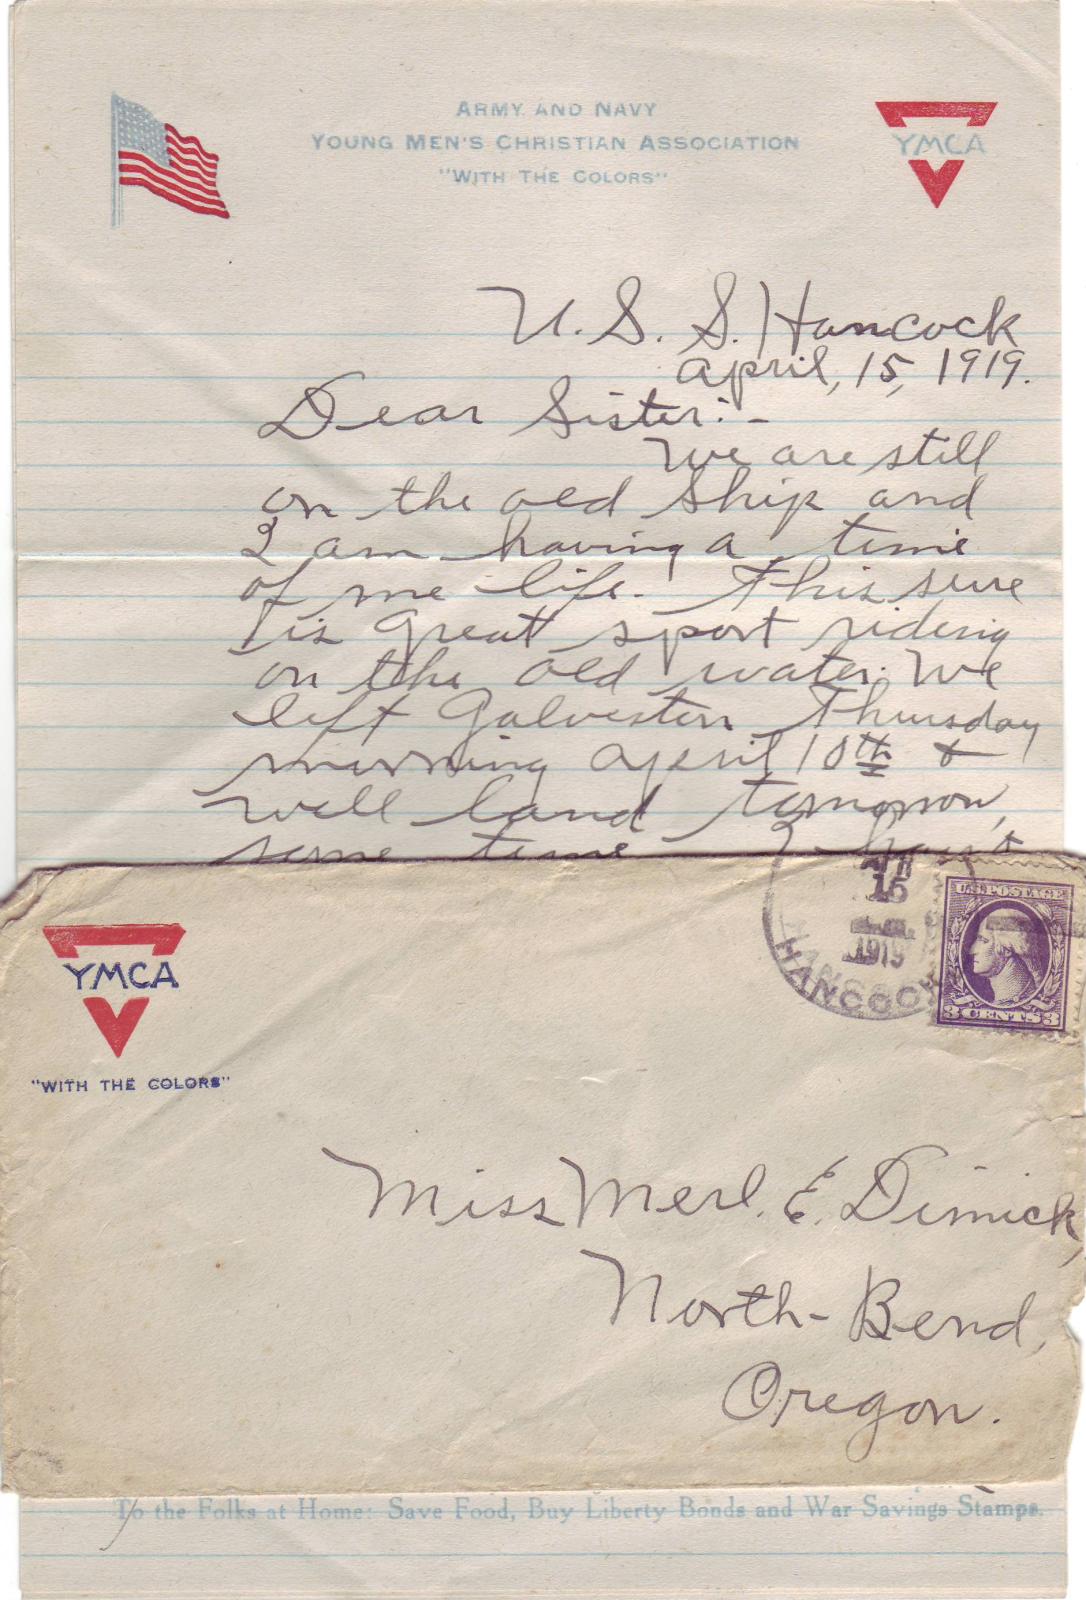 ARMY AND NAVY
YOUNG MEN'S CHRISTIAN ASSOCIATION
"WITH THE COLORS"
YMCA
U. S. S. Hancock
April, 15, 1919.
Dear Sister:-
We are still
on the old ship and
I am having a time
of me life. This sure
is great sport riding
on the old water. We
left Galveston Thursday
morning April 10th &
will land tomorrow,
some time
YMCA
"WITH THE COLORS"
15
1919
HANCOCK
U.S. POSTAGE
3 CENTS 3
Miss Merl. E. Dimick,
North-Bend,
Oregon.
To the Folks at Home: Save Food, Buy Liberty Bonds and War Savings Stamps.